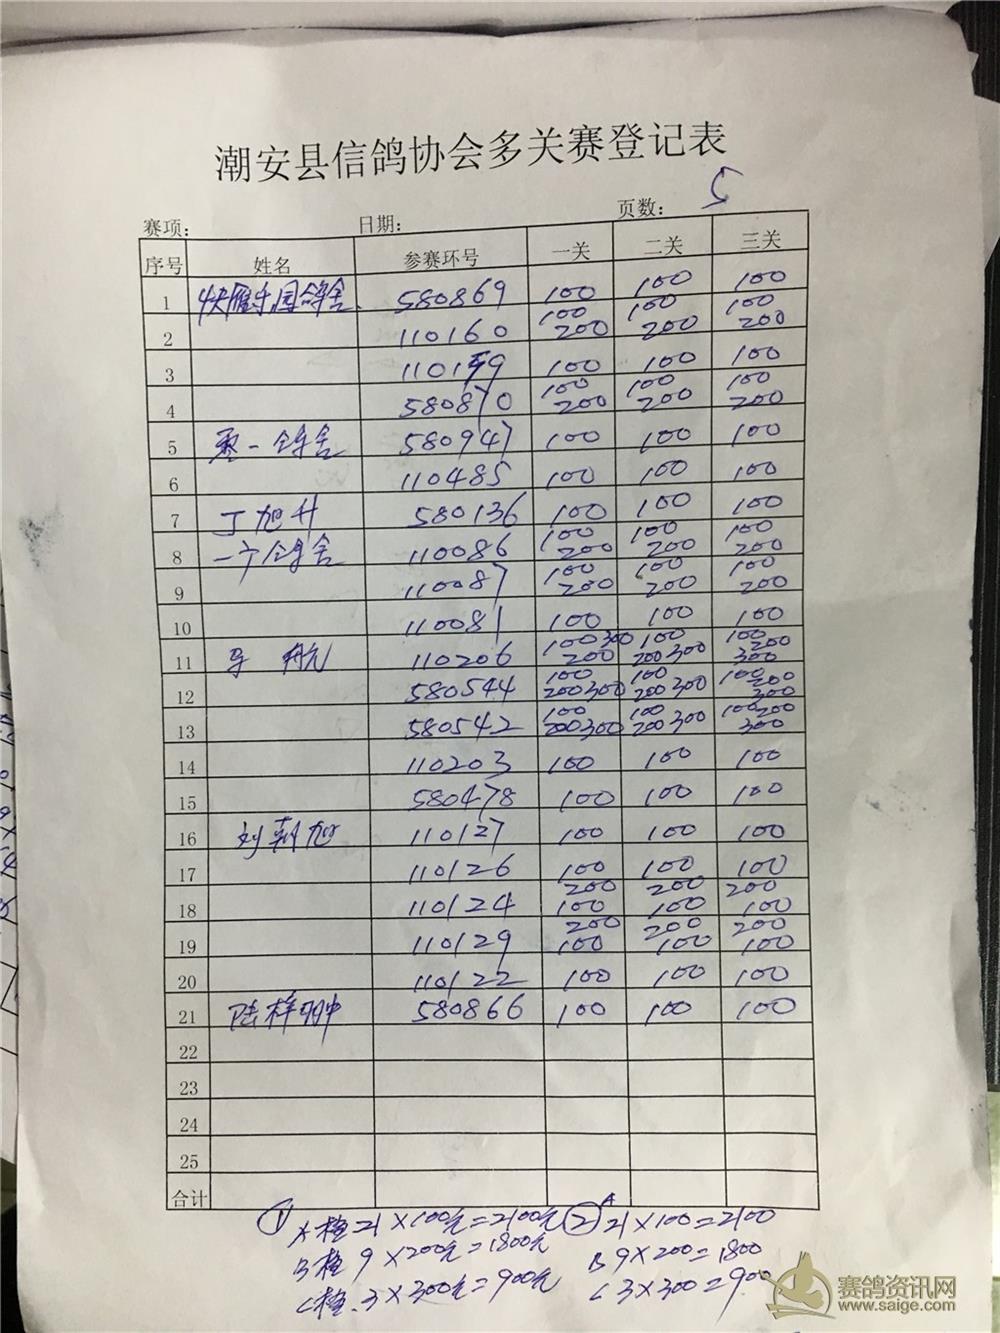 潮安县信鸽协会多关赛登记表
赛项: 日期: 页数: 5
序号 姓名 参赛环号 一关 二关 三关
1 快雁乐园鸽舍 580869 100 100 100
2 110160 100 200 100 200 100 200
3 110159 100 100 100
4 580870 100 200 100 200 100 200
5 一鸽舍 580947 100 100 100
6 110485 100 100 100
7 丁旭升 580136 100 100 100
8 一宁鸽舍 110086 100 200 100 200 100 200
9 110087 100 200 100 200 100 200
10 110081 100 100 100
11 航 110206 100 300 200 100 200 300 100 200 300
12 580544 100 200 300 100 200 300 100 200 300
13 580542 100 200 300 100 200 300 100 200 300
14 110203 100 100 100
15 580478 100 100 100
16 刘朝旭 110127 100 100 100
17 110126 100 100 100
18 110124 200 100 200 100 200 100
19 110129 200 100 200 100 200 100
20 110122 100 100 100
21 陆梓翀 580866 100 100 100
22
23
24
25
合计
① A组 21×100元=2100元 ② A 21×100=2100
B组 9×200元=1800元 B 9×200=1800
C组 3×300元=900元 C 3×300=900
赛鸽资讯网
www.saige.com